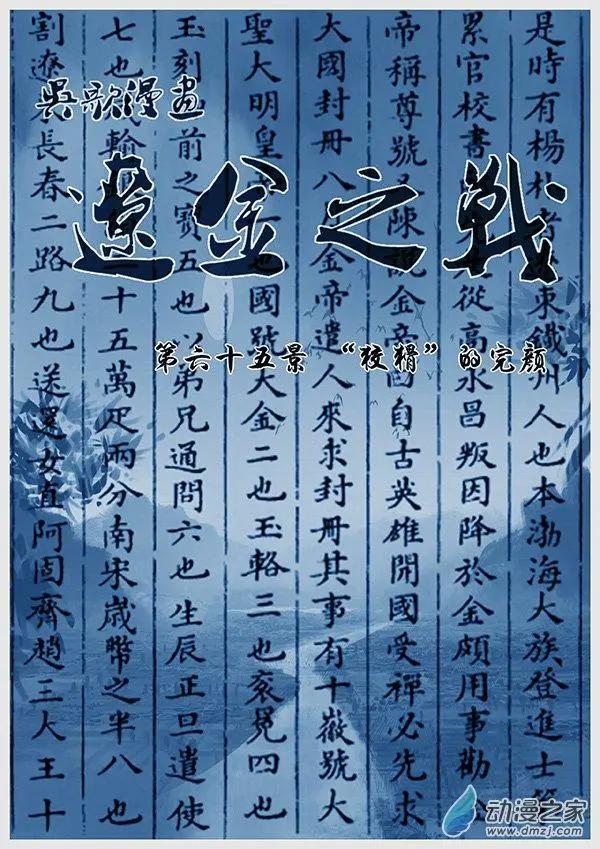 吳歌漫畫
遼金之戰
第六十五景 “狡猾”的完顏
是時有楊朴者東鐵州人也本渤海大族登進士
累官校書從高永昌叛因降於金頗用事勸
帝稱尊號陳說金帝曰自古英雄開國受禪必先求
大國封冊八金帝遣人來求封冊其事有十徽號大
聖大明皇一也國號大金二也玉輅三也袞冕四也
玉刻前之寶五也弟兄通問六也生辰正旦遣使
七也輸二十五萬疋兩分南宋歲幣之半八也
割遼長春二路九也送還女直阿固齊趙三大王十
动漫之家
www.dmzj.com